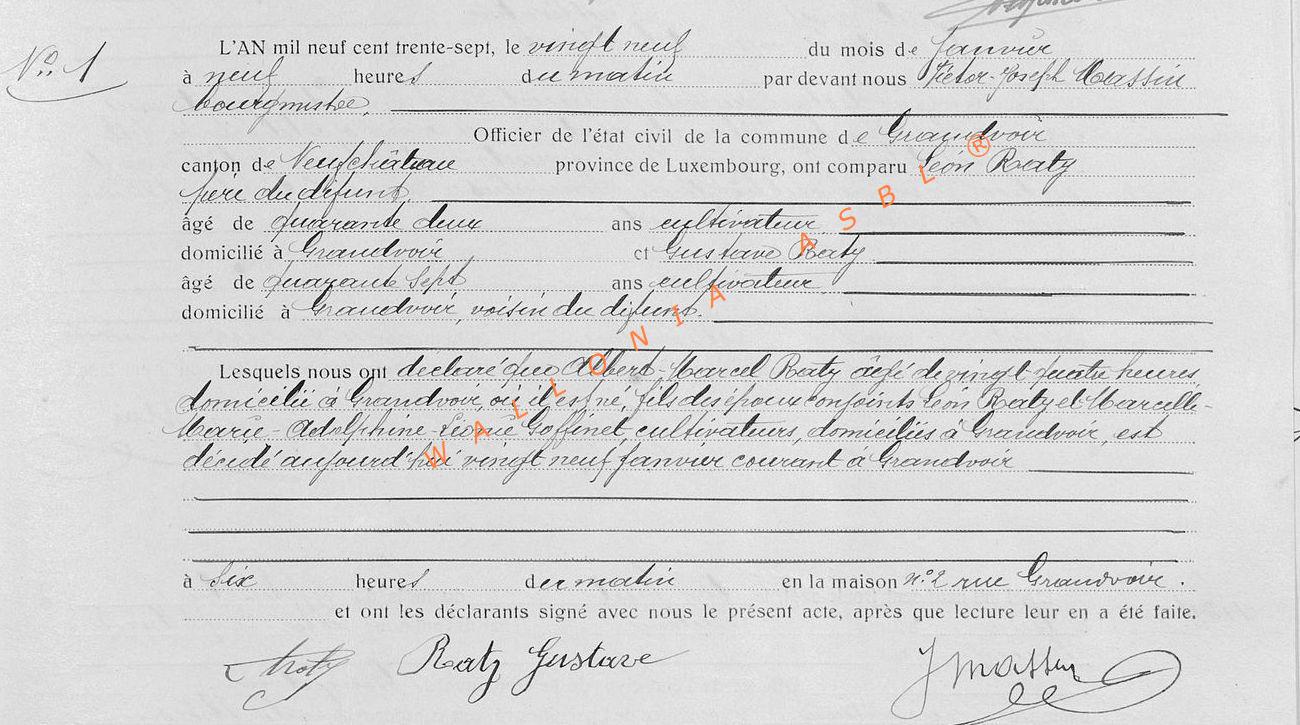 No. 1
L'AN mil neuf cent trente-sept, le vingt neuf du mois de Janvier
à neuf heures du matin par devant nous Victor-Joseph Massin
bourgmestre,
Officier de l'état civil de la commune de Grandvoir
canton de Neufchâteau province de Luxembourg, ont comparu Léon Raty
père du défunt,
âgé de quarante deux ans cultivateur
domicilié à Grandvoir et Gustave Raty
âgé de quarante sept ans cultivateur
domicilié à Grandvoir, voisin du défunt.
Lesquels nous ont déclaré que Albert-Marcel Raty âgé de vingt quatre heures,
domicilié à Grandvoir, où il est né, fils des époux conjoints Léon Raty et Marcelle-
Marie-Adolphine-Léonie Goffinet, cultivateurs, domiciliés à Grandvoir, est
décédé aujourd'hui vingt neuf janvier courant à Grandvoir
à six heures du matin en la maison n° 2 rue Grandvoir.
et ont les déclarants signé avec nous le présent acte, après que lecture leur en a été faite.
Raty Gustave JMassin
WALLONIA ASBL ®